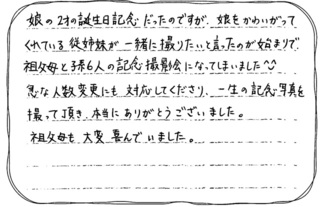 娘の2才の誕生日記念だったのですが、娘をかわいがって
くれている従姉妹が一緒に撮りたいと言ったのが始まりで
祖父母と孫6人の記念撮影会になってしまいました^^
急な人数変更にも対応してくださり、一生の記念写真を
撮って頂き、本当にありがとうございました。
祖父母も大変喜んでいました。